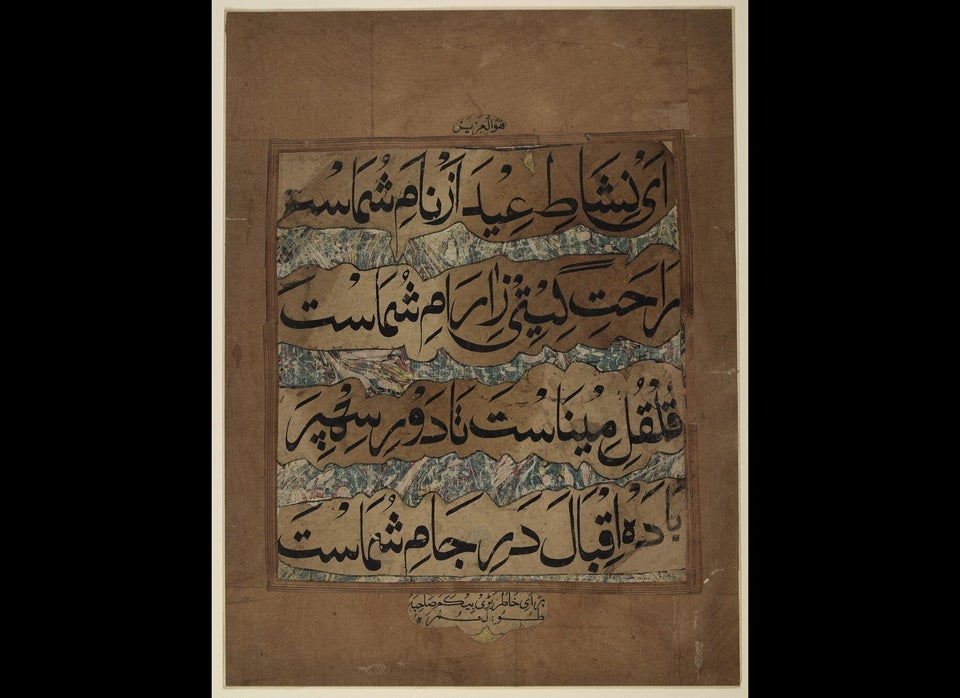 هو العزیز
اَی نِشَاطِ عِیْدَ از نامِ شُماست
رَاحَتِ گِیْتِی زارامِ شُماست
قُلْقُلِ مِیْنَاسْت تَا دَوْرِ سِپِهْر
بادَهِ اِقْبَال دَر جَامِ شُماست
برای خاطر بیگم صاحبه
طول عمره